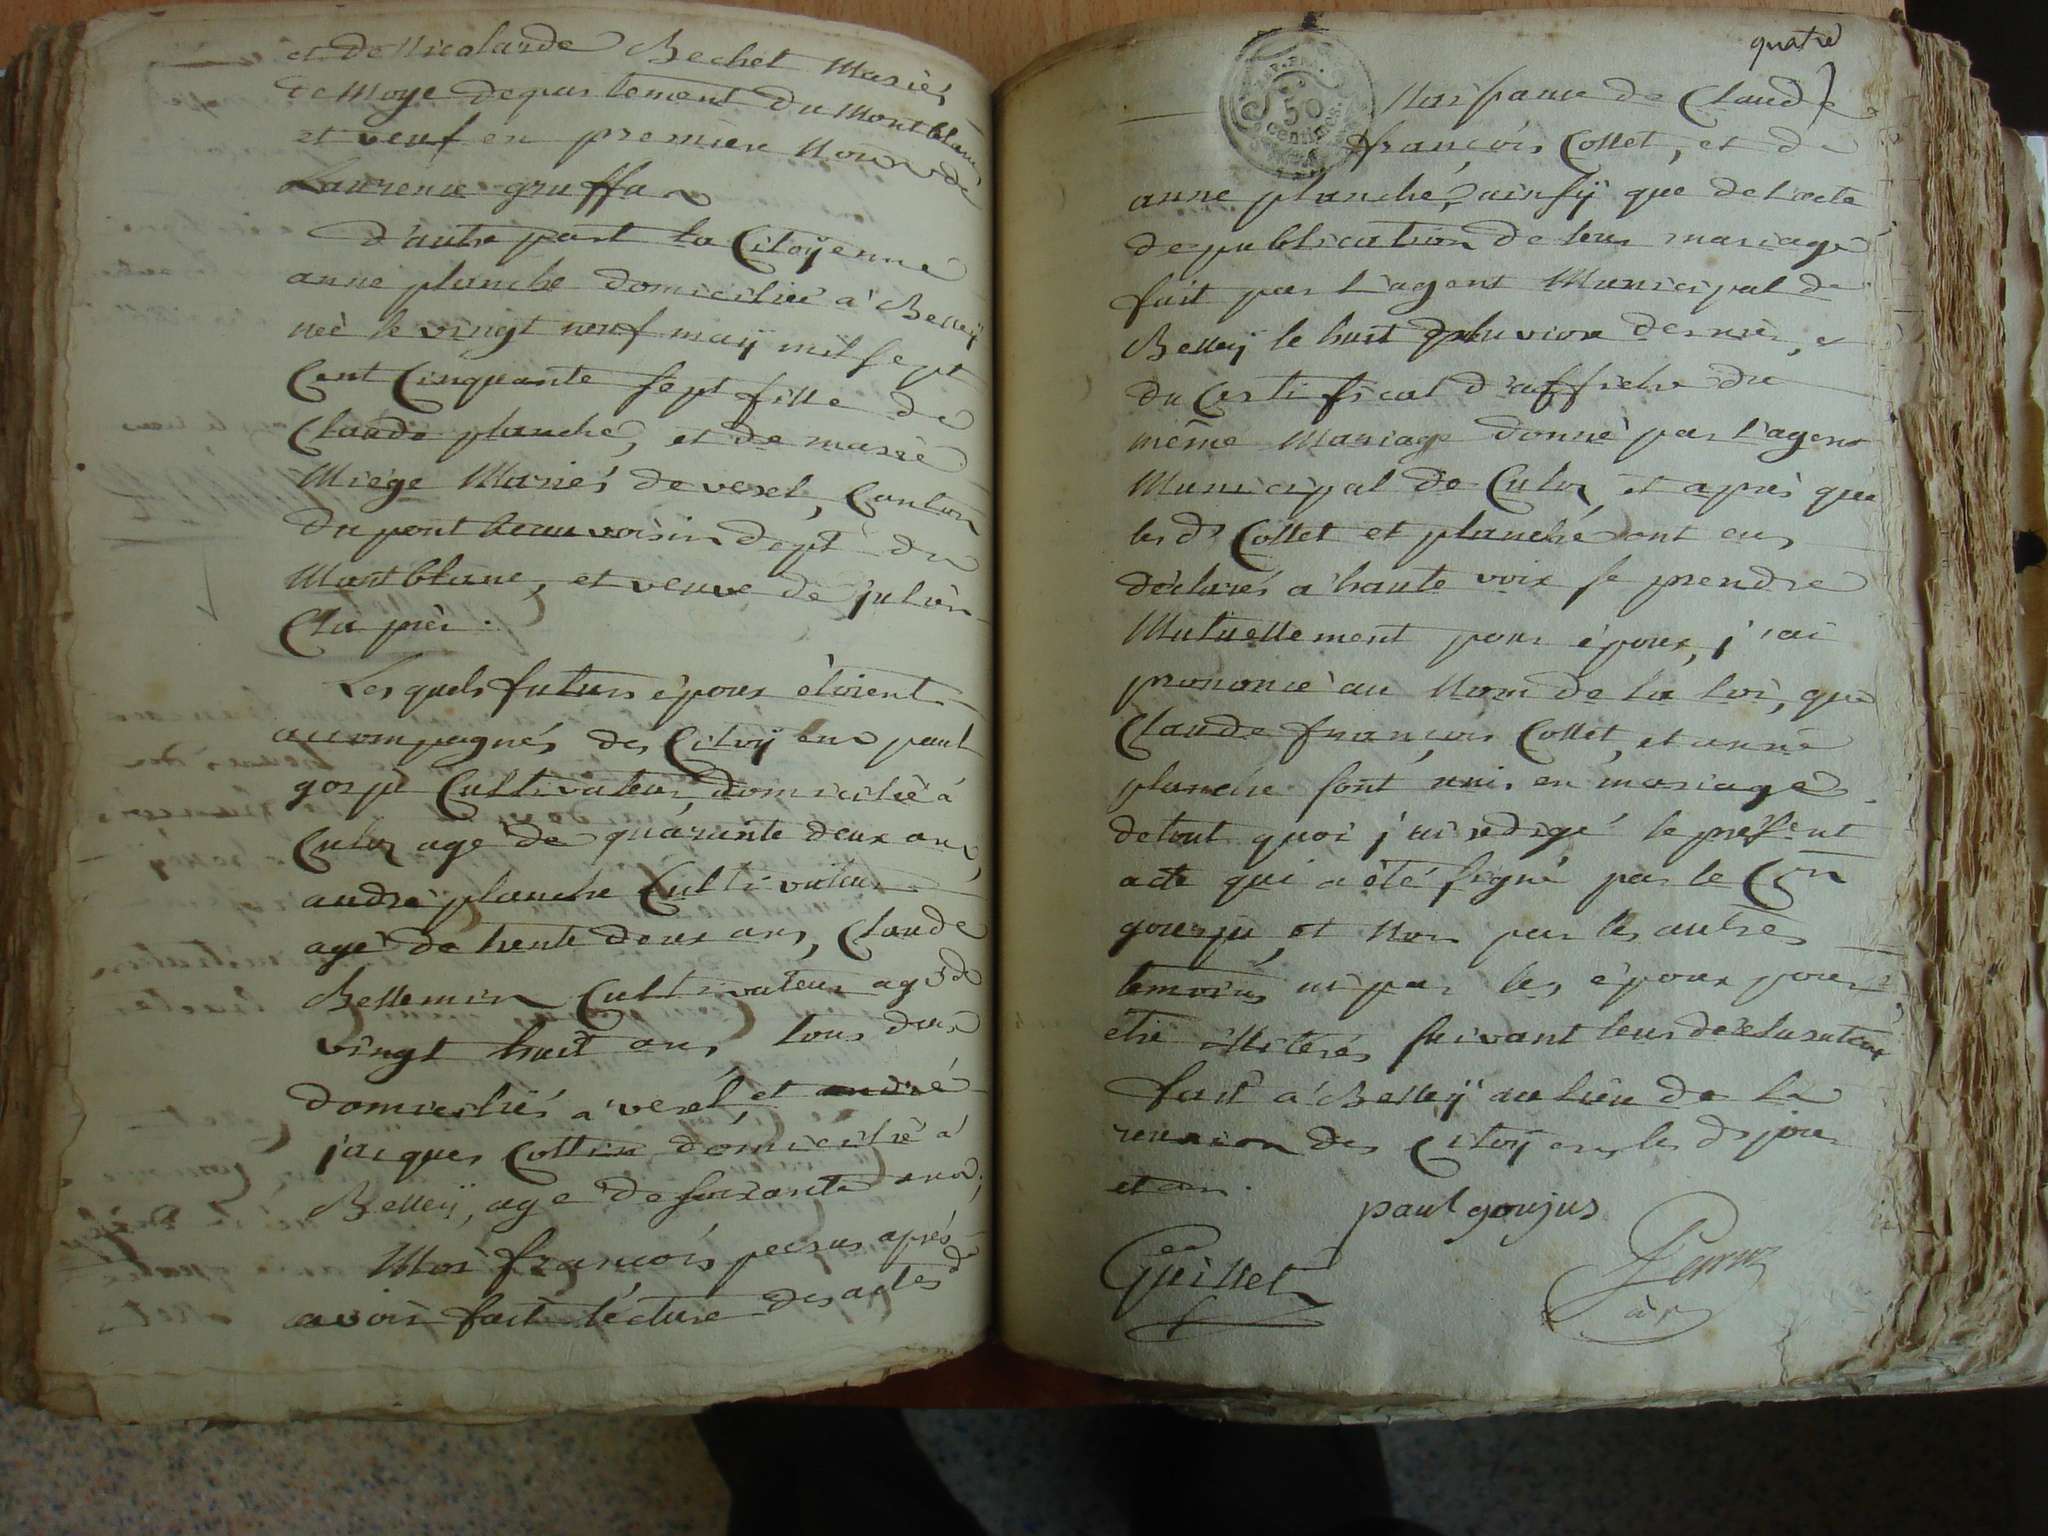 et de Nicolarde Bechet Mariés
de Moye departement du Montblanc
et veuf en premiere Noux de
Laurence gruffa
d'autre part la Citoÿenne
anne planche domiciliée a Belleÿ
neè le vingt neuf maÿ mil sept
Cent Cinquante sept fille de
Claude planche, et de marie
Miége Mariés de verel, Canton
du pont beauvoisin dept du
Montblanc, et veuve de julien
Cla prèi.
Les quels futurs épour étoient
accompagnés des Citoÿens paul
gorju Cultivateur, domicilié à
Culoz agé de quarante deux ans,
andré planche Cultivateur
agé de trente deux ans, Claude
Bellemin Cultivateur agé de
vingt huit ans tous deux
domiciliés a verel, et andré
jacques Collin domicilié a
Belleÿ, age de soixante ans,
Moi françois peisus après
avoir fait lecture des actes de
quatre
REP. FRA.
50
centimes
Naissance de Claude
françois Collet, et de
anne planche, ainsÿ que de l'acte
de publication de leur mariage
fait par l'agent Municipal de
Belleÿ le huit pluviose dernier, et
du Certificat d'affiche du
même Mariage donné par l'agent
Municipal de Culoz, et après que
les ds Collet et planche ont eus
déclarés a haute voix se prendre
Mutuellement pour époux, j'ai
prononcé au Nom de la loi, que
Claude françois Collet, et anne
planche sont unis en mariage
de tout quoi j'ai redigé le present
acte qui a été signé par le Cen
gourju, et Non par les autres
temoins ni par les époux pour
etre illiterés suivant leur déclaration
fait a Belleÿ au lieu de la
reunion des Citoÿens les ds jour
et an.
paul goujus
Guillet